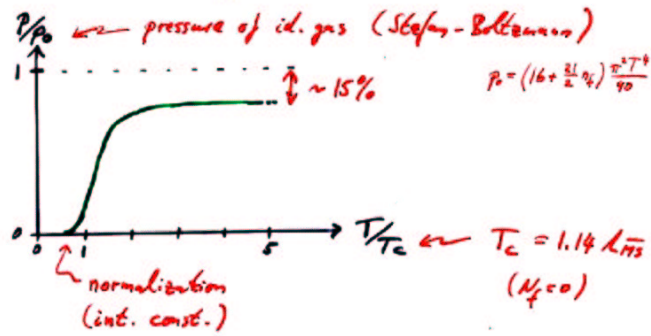 P/P₀ ← pressure of id. gas (Stefan-Boltzmann)
p₀ = (16 + 21/2 n_f) π²T⁴/90
1
~ 15%
0
0 1 5 T/Tc ← Tc = 1.14 Λ_MS̄
(N_f = 0)
normalization
(int. const.)